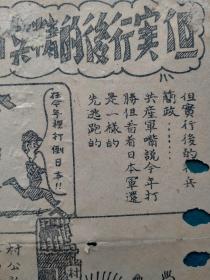 但實行後的精兵
但實行後的 兵
簡政……
共産軍嘴說今年打
勝但看着日本軍還
是一樣的
先逃跑的
在今年裡打倒日本!!
村公